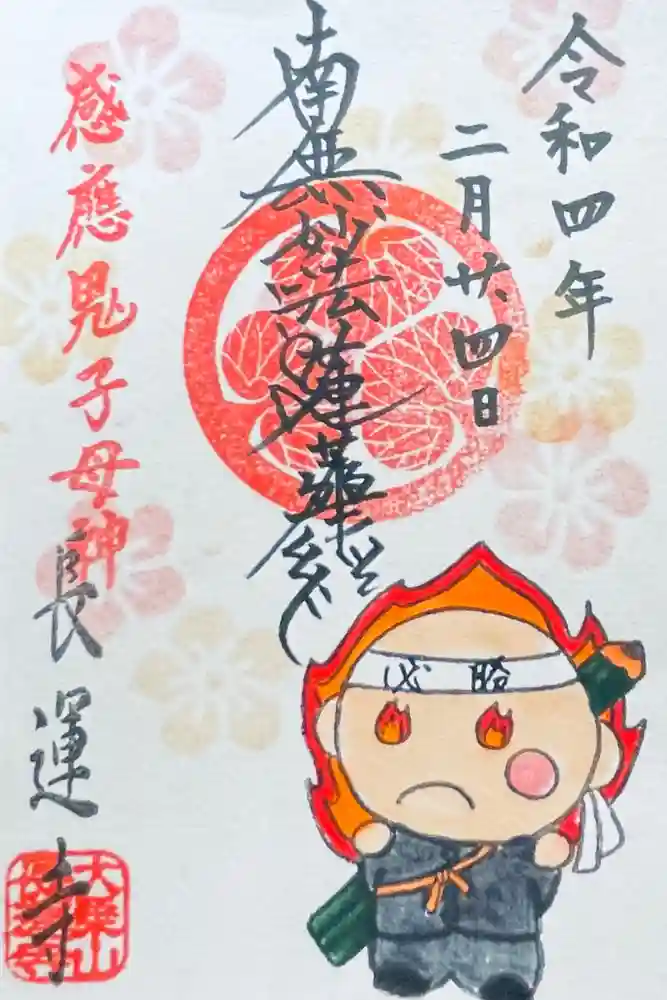 令和四年
二月廿四日
南無妙法蓮華経
感應鬼子母神
長運寺
必勝
大乗山